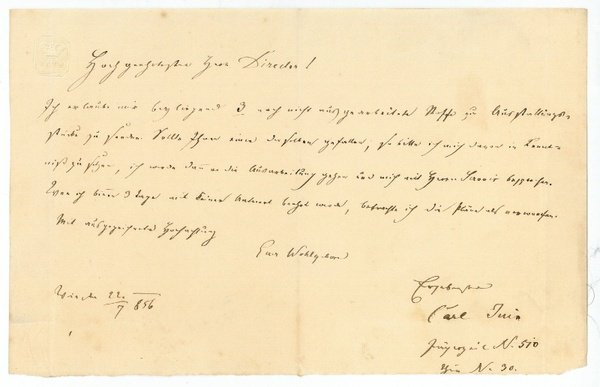 Hochgeehrtester Herr Director!
Ich erlaube mir beyliegend 3 noch nicht ausgearbeitete Stoffe zu Ausstattungs-
stücke zu senden. Sollte Ihnen einer derselben gefallen, so bitte ich mich davon in Kennt-
niß zu setzen, ich werde dann an die Ausarbeitung gehen und mich mit Herrn besprechen.
Wenn ich binnen 3 Tage mit keiner Antwort beehrt werde, betrachte ich die Pläne als verworfen.
Mit ausgezeichneter Hochachtung
Euer Wohlgeboren
Wien den 22/7 856
Ergebenster
Carl
N. 510
Thür No. 30.